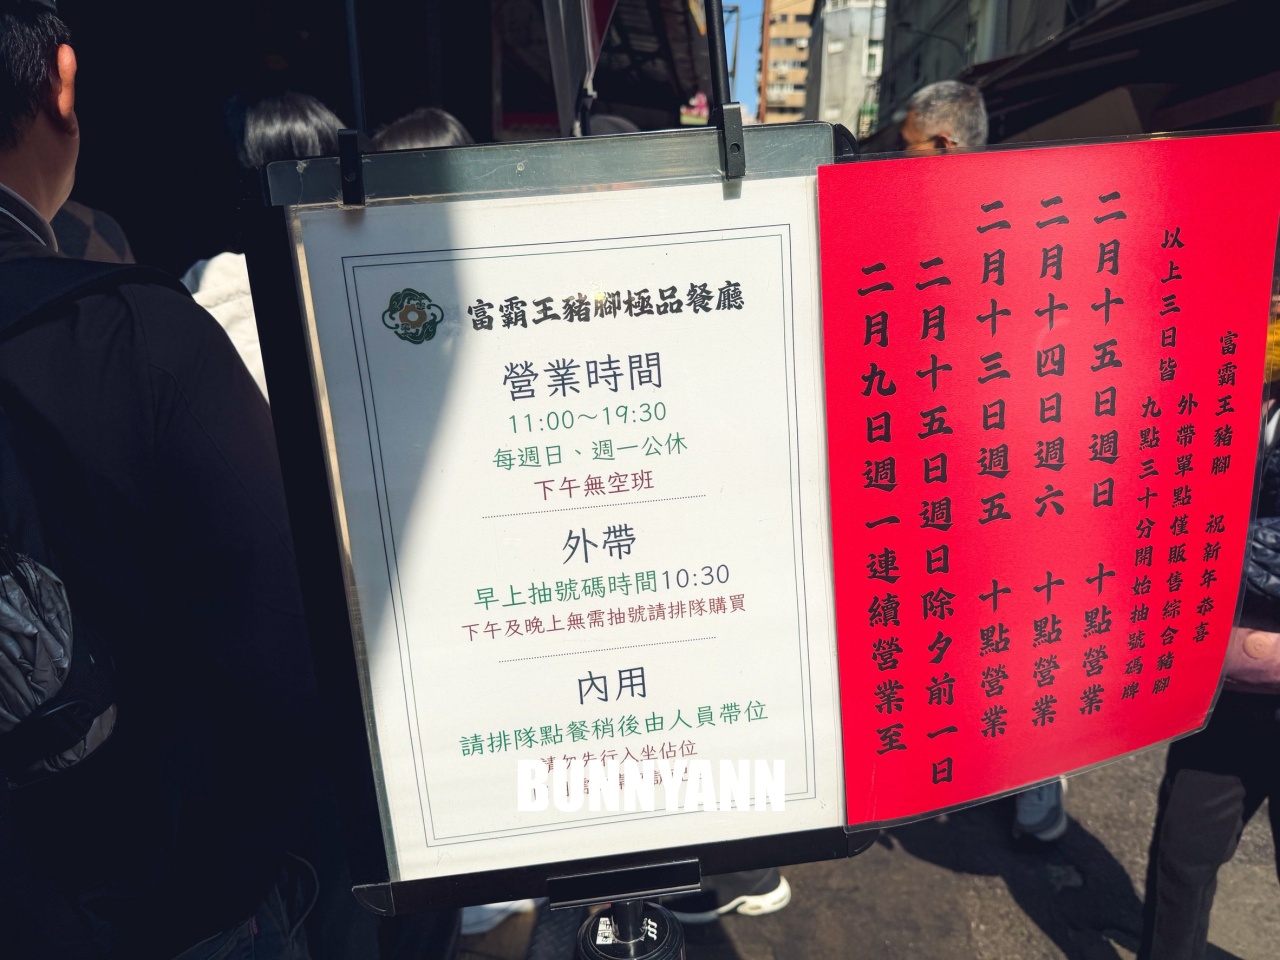 富霸王豬腳極品餐廳
營業時間
11:00～19:30
每週日、週一公休
下午無空班
外帶
早上抽號碼時間10:30
下午及晚上無需抽號請排隊購買
內用
請排隊點餐稍後由人員帶位
請勿先行入坐佔位
BUNNYANN
二月九日週一連續營業至
二月十五日週日除夕前一日
二月十三日週五 十點營業
二月十四日週六 十點營業
二月十五日週日 十點營業
以上三日皆
九點三十分開始抽號碼牌
外帶單點僅販售綜合豬腳
富霸王豬腳 祝新年恭喜